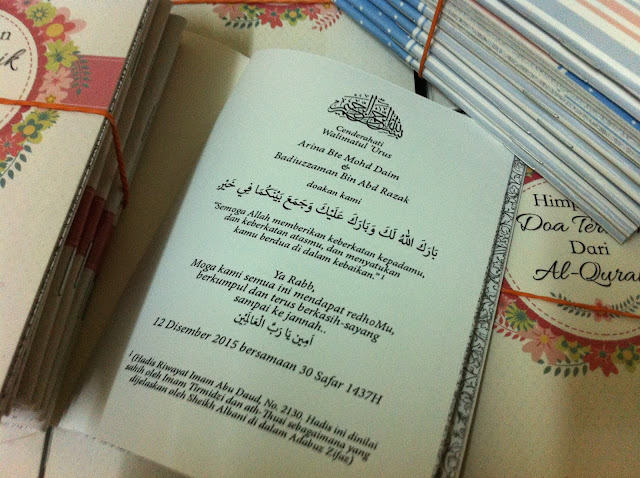 بسم الله الرحمن الرحيم
Cenderahati
Walimatul 'Urus
Arina Bte Mohd Daim
&
Badiuzzaman Bin Abd Razak
doakan kami
بَارَكَ اللهُ لَكَ وَبَارَكَ عَلَيْكَ وَجَمَعَ بَيْنَكُمَا فِي خَيْرٍ
"Semoga Allah memberikan keberkatan kepadamu,
dan keberkatan atasmu, dan menyatukan
kamu berdua di dalam kebaikan." 1
Ya Rabb,
Moga kami semua ini mendapat redhoMu,
berkumpul dan terus berkasih-sayang
sampai ke jannah..
اَمِينْ يَا رَبَّ الْعَالَمِيْنَ
12 Disember 2015 bersamaan 30 Safar 1437H
1 (Hadis Riwayat Imam Abu Daud, No. 2130. Hadis ini dinilai
sahih oleh Imam Tirmidzi dan ath-Thusi sebagaimana yang
dijelaskan oleh Sheikh Albani di dalam Adabuz Zifaf)
Doa
Dari